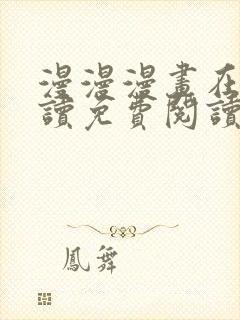 漫漫漫畫在
讀免費閱讀
鳳舞